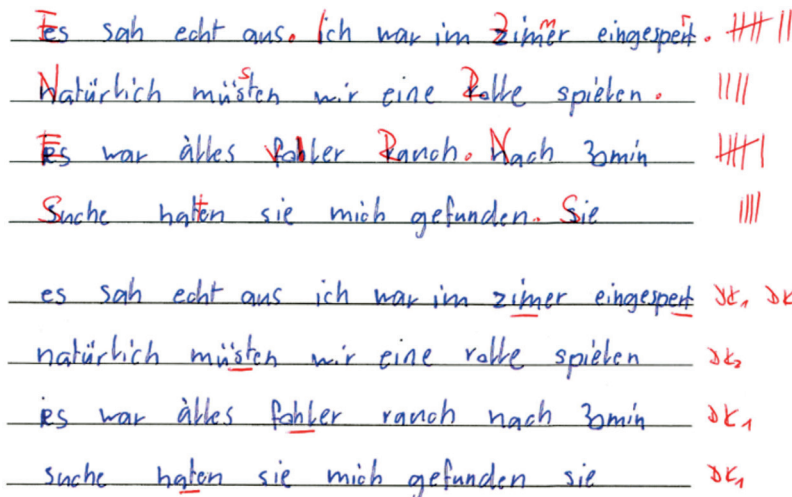 Es sah echt aus. Ich war im Zimmer eingesperrt.
Natürlich müssten wir eine Rolle spielen.
Es war alles voller Rauch. Nach 30min
Suche hatten sie mich gefunden. Sie
es sah echt aus ich war im zimer eingespert DK1 DK
natürlich müsten wir eine rolle spielen DK2
es war alles fohler rauch nach 30min DK1
suche haten sie mich gefunden sie DK1